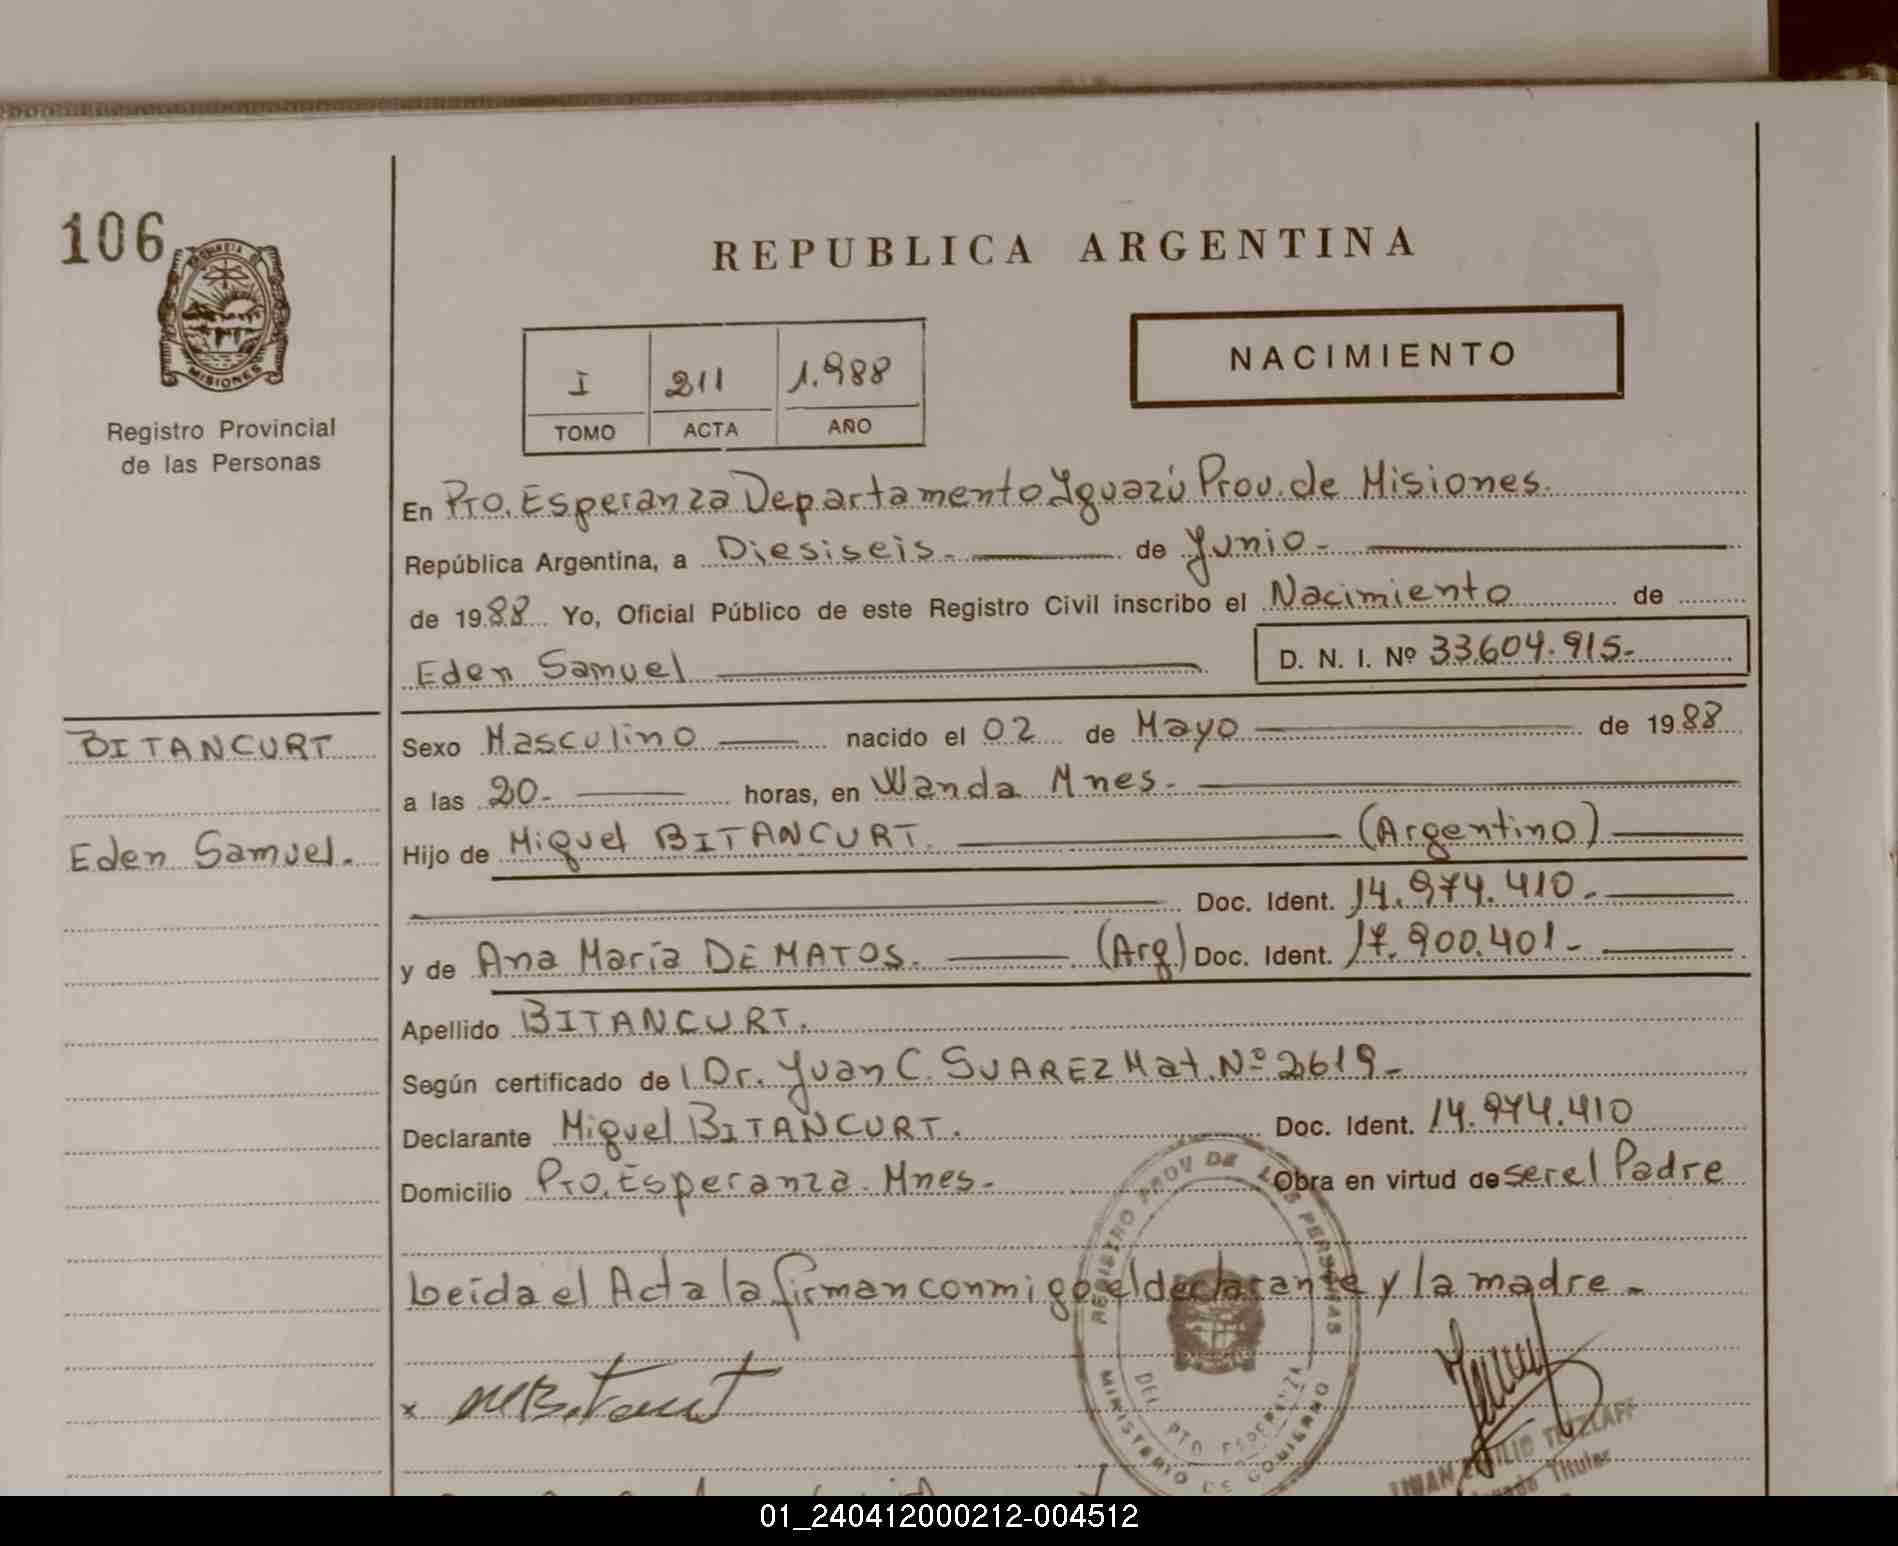 106
REPUBLICA ARGENTINA
MISIONES
Registro Provincial
de las Personas
I 211 1.988
TOMO ACTA AÑO
NACIMIENTO
En Pto. Esperanza Departamento Iguazú Prov. de Misiones.
República Argentina, a Diesiseis. de Junio.
de 1988 Yo, Oficial Público de este Registro Civil inscribo el Nacimiento de
Eden Samuel D. N. I. Nº 33.604.915-
BITANCURT
Eden Samuel.
Sexo Masculino nacido el 02 de Mayo de 1988
a las 20- horas, en Wanda Mnes.
Hijo de Miguel BITANCURT. (Argentino)
Doc. Ident. 14.974.410.
y de Ana María DE MATOS. (Arg) Doc. Ident. 17.900.401-
Apellido BITANCURT.
Según certificado de Dr. Juan C. SUAREZ Mat. Nº 2619-
Declarante Miguel BITANCURT. Doc. Ident. 14.974.410
Domicilio Pto. Esperanza Mnes. Obra en virtud de ser el Padre
Leída el Acta la firman conmigo el declarante y la madre.
REGISTRO PROV DE LAS PERSONAS
DEL PTO ESPERANZA
MINISTERIO DE GOBIERNO
x
TETZLAFF
Titular
01_240412000212-004512